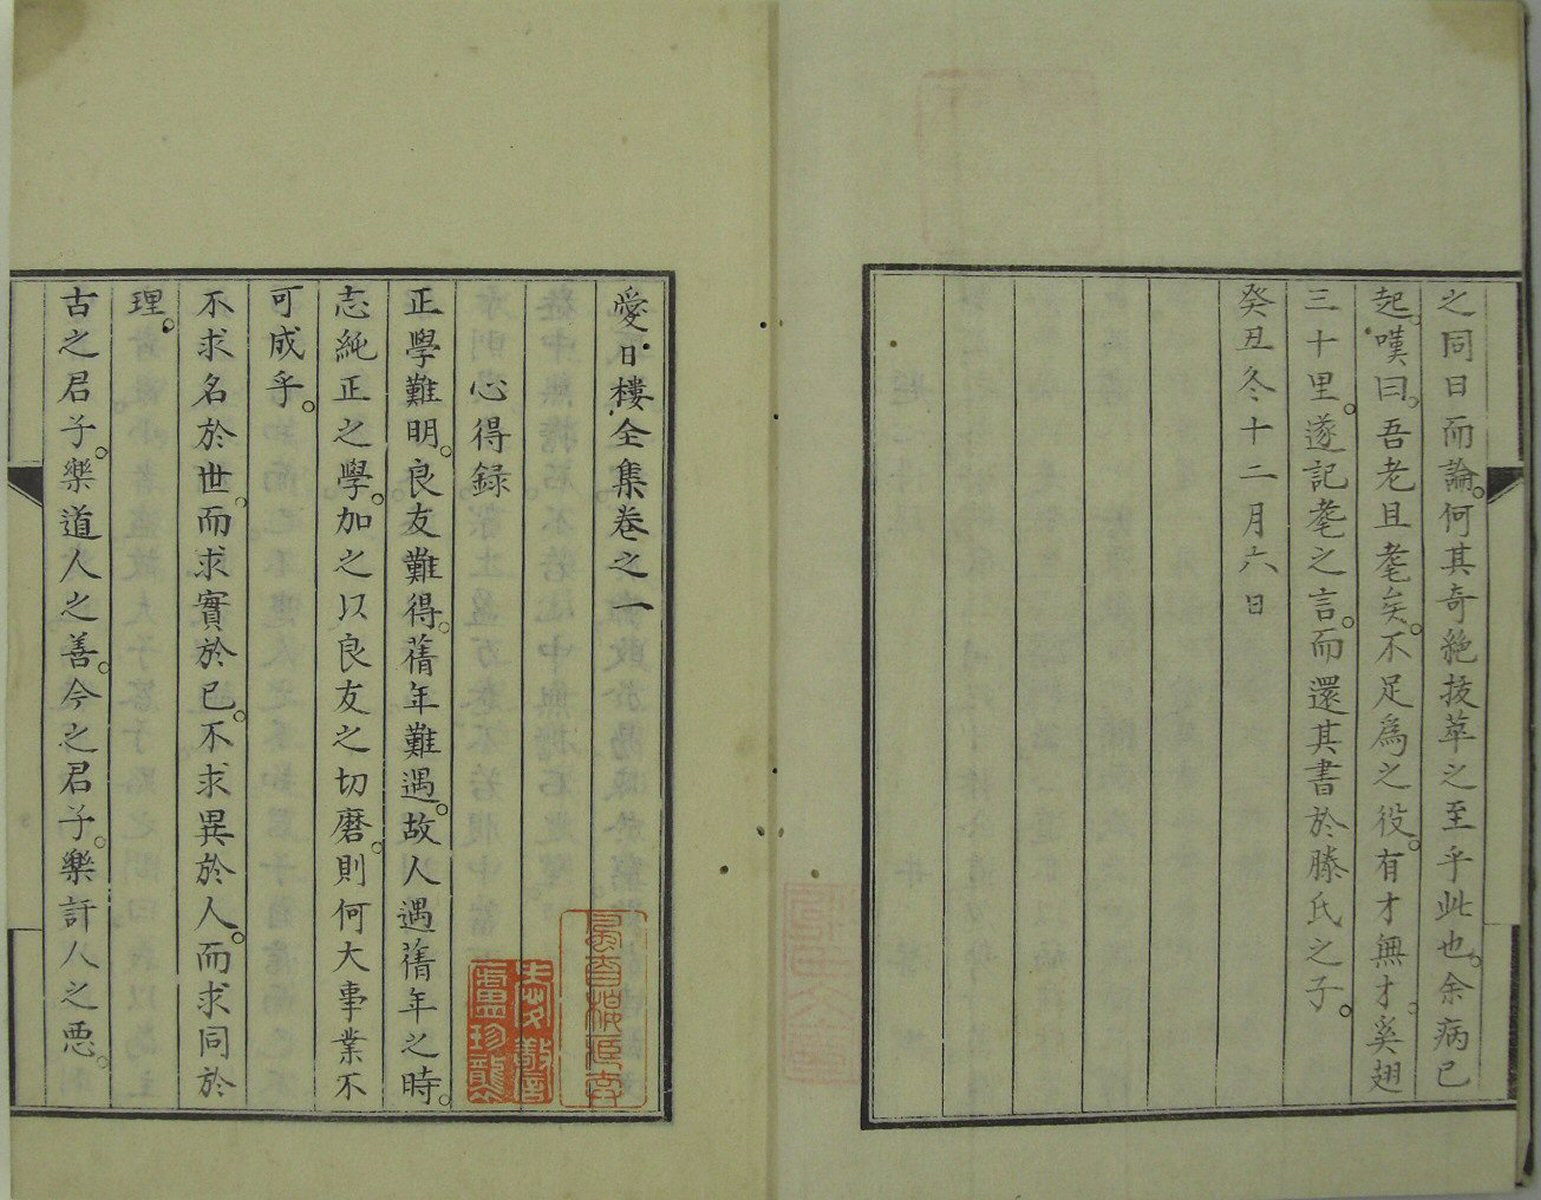 之同日而論。何其奇絶拔萃之至乎此也。余病已
起。嘆曰。吾老且耄矣。不足爲之役。有才無才。奚翅
三十里。遂記耄之言。而還其書於滕氏之子。
癸丑冬十二月六日
愛日樓全集卷之一
心得録
正學難明。良友難得。舊年難遇。故人遇舊年之時。
志純正之學。加之以良友之切磨。則何大事業不
可成乎。
不求名於世。而求實於己。不求異於人。而求同於
理。
古之君子。樂道人之善。今之君子。樂訐人之惡。